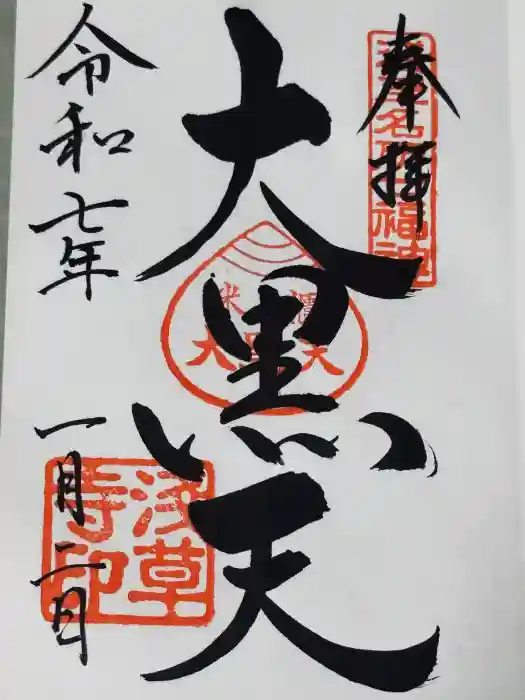 奉拝
浅草名所七福神
大黒天
米びつ大黒天
令和七年
一月二日
浅草寺印